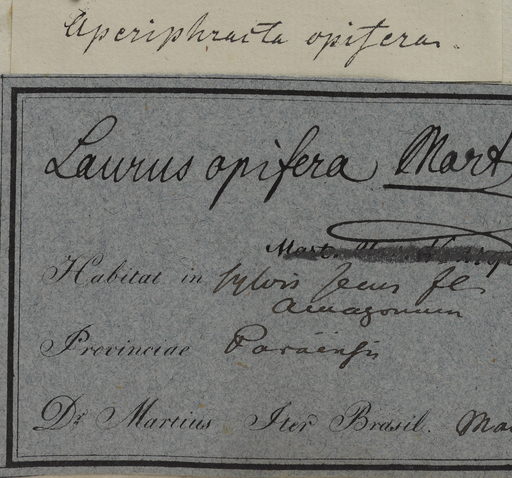 Aperiphracta opifera.
Laurus opifera Mart
Mart.
Habitat in sylvis secus fl.
Amazonum
Provinciae Paraënsis
Dr. Martius Iter Brasil.